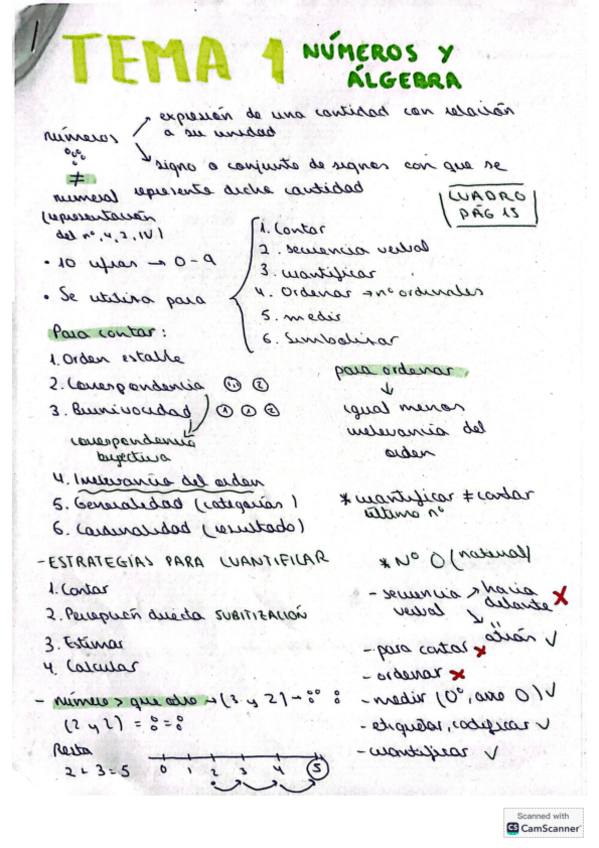 TEMA 1 NÚMEROS Y ÁLGEBRA
números
expresión de una cantidad con relación
a su unidad
signo o conjunto de signos con que se
representa dicha cantidad
≠
numeral
(representación
del nº, 4, 2, IV)
CUADRO
PÁG 15
• 10 cifras → 0-9
• Se utiliza para
1. Contar
2. secuencia verbal
3. cuantificar
4. Ordenar → nº ordinales
5. medir
6. Simbolizar
Para contar:
1. Orden estable
2. Correspondencia
3. Biunivocidad
1 1 2
correspondencia
biyectiva
4. Irrelevancia del orden
5. Generalidad (categorías)
6. Cardinalidad (resultado)
para ordenar
↓
igual menos
irrelevancia del
orden
* cuantificar ≠ contar
último nº
- ESTRATEGIAS PARA CUANTIFICAR
1. Contar
2. Percepción directa SUBITIZACIÓN
3. Estimar
4. Calcular
- número > que otro → (3 y 2) →
(2 y 2) = =
Recta
2 + 3 = 5
0 1 2 3 4 5
* Nº 0 (natural)
- secuencia verbal → hacia delante X
" atrás ✓
- para contar X
- ordenar X
- medir (0º, año 0) ✓
- etiquetar, codificar ✓
- cuantificar ✓
Scanned with
CS CamScanner